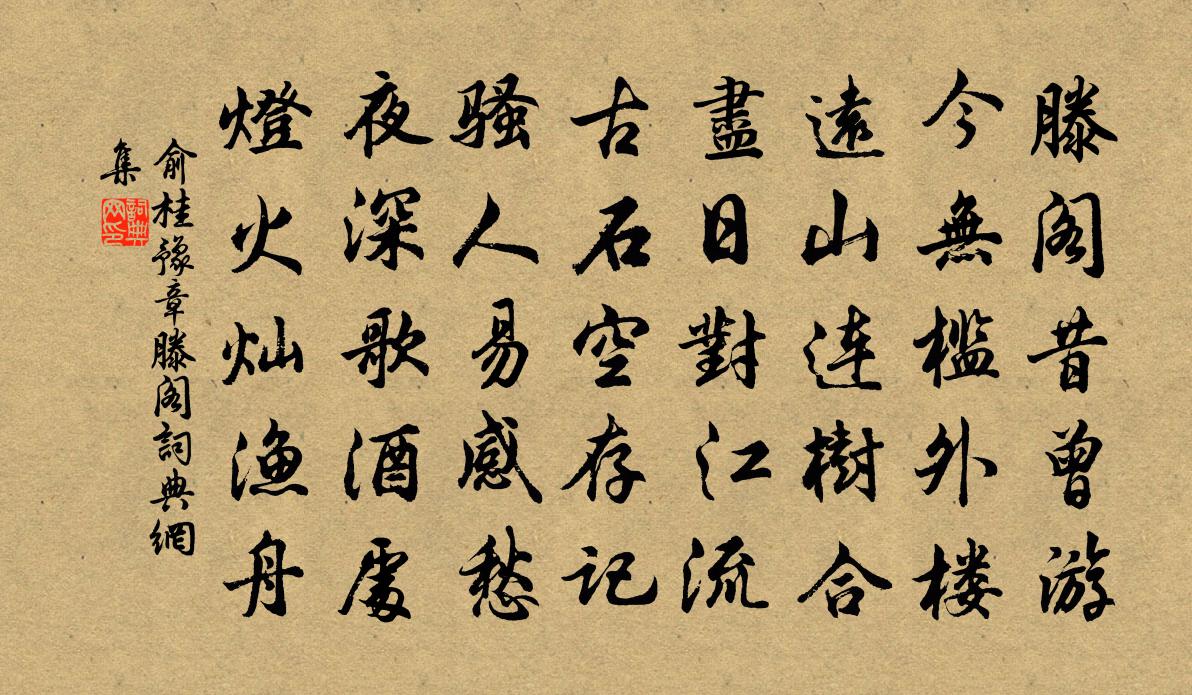 滕阁昔曾游
今無檻外楼
遠山连樹合
盡日對江流
古石空存记
骚人易感愁
夜深歌酒處
燈火灿漁舟
俞桂豫章滕阁詞典網
集
詞典网印